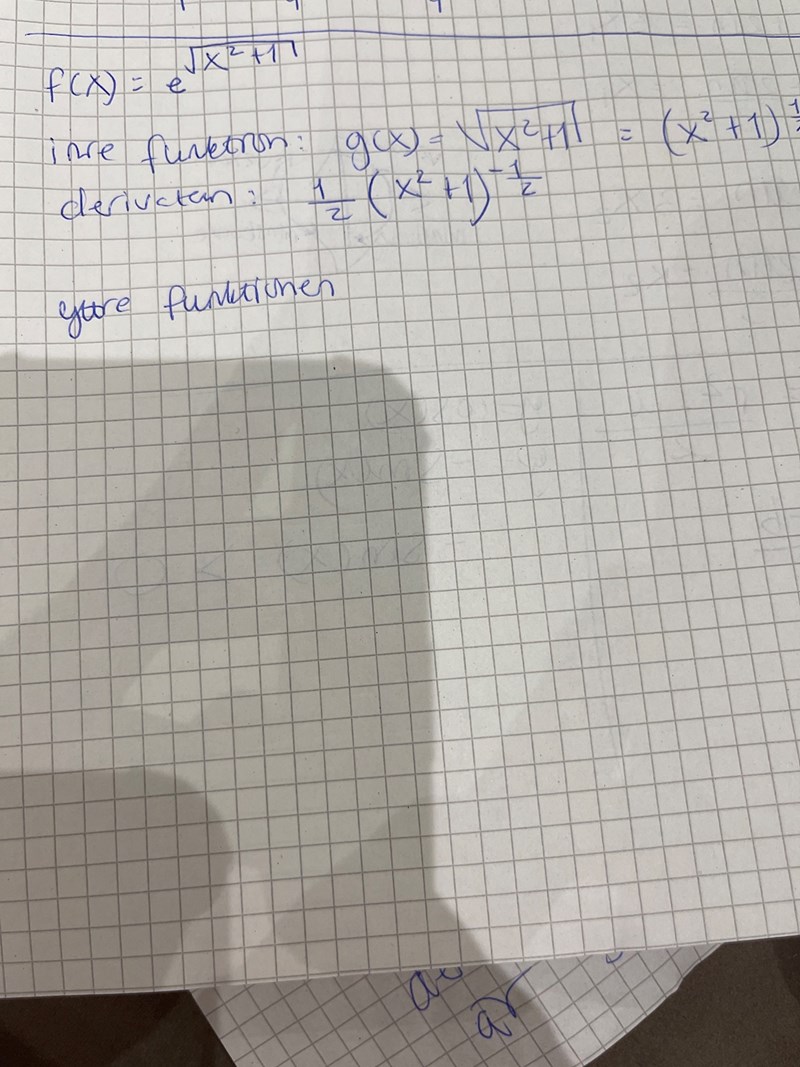 f(x) = e^√(x²+1)
inre funktion: g(x) = √(x²+1) = (x²+1)^½
derivatan: 1/2 (x²+1)^-1/2
yttre funktionen